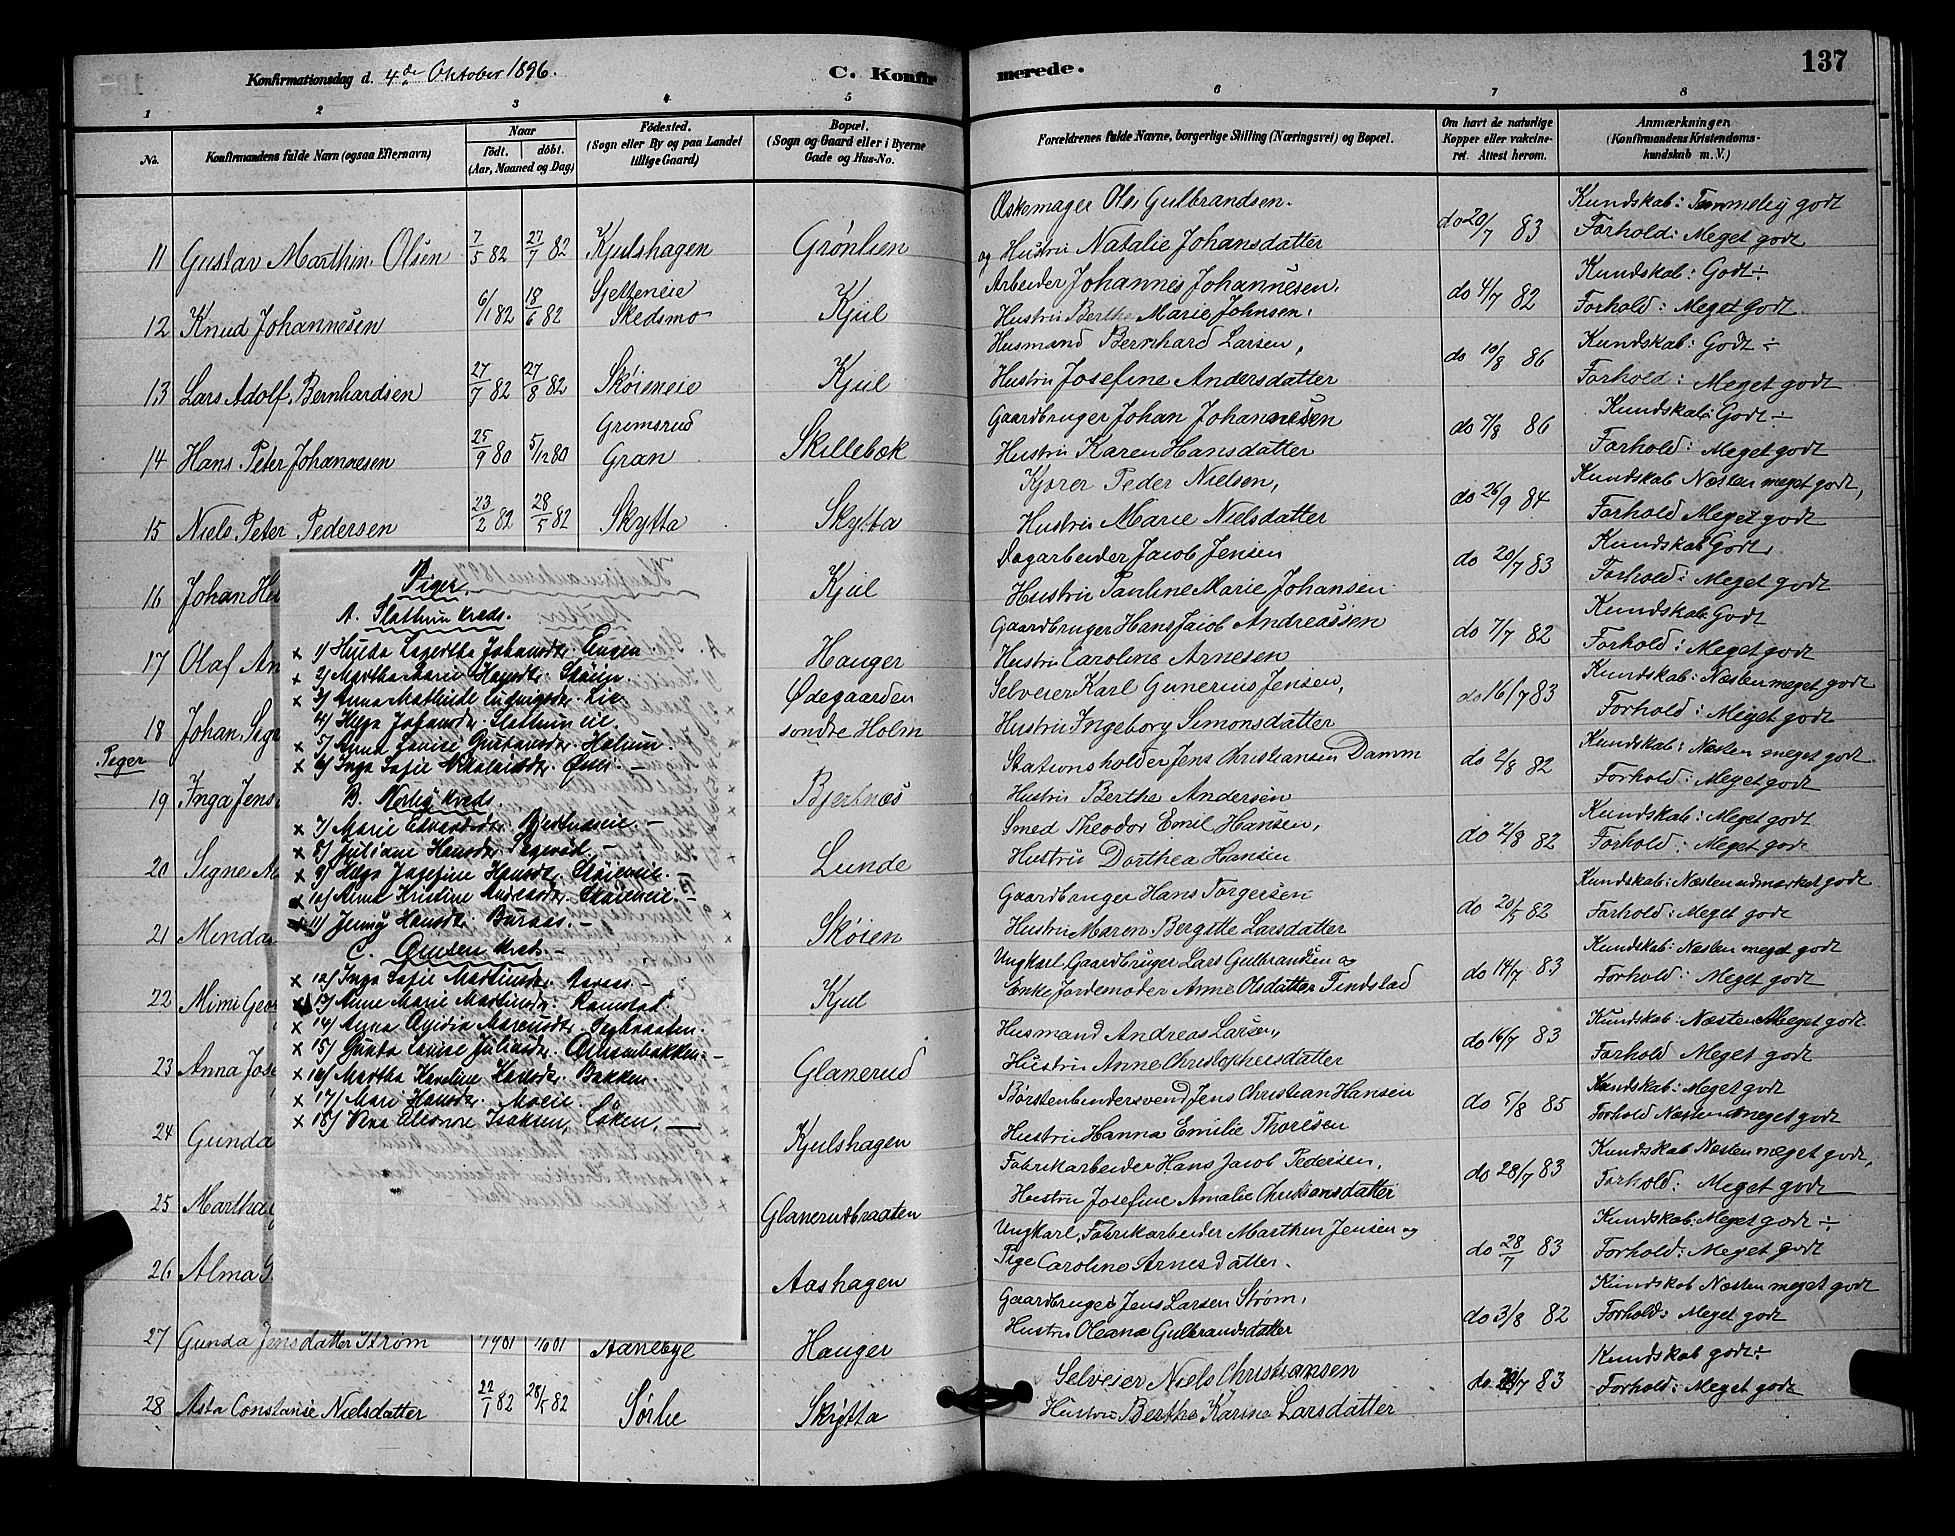 Konfirmationsdag d. 4de Oktober 1896.
C. Konfirmerede.
137
1 2 3 4 5 6 7 8
No.
Konfirmandens fulde Navn (ogsaa Efternavn)
Naar
født. døbt.
(Aar, Maaned og Dag)
Fødested.
(Sogn eller By og paa Landet
tillige Gaard)
Bopæl.
(Sogn og Gaard eller i Byerne
Gade og Hus-No.
Forældrenes fulde Navne, borgerlige Stilling (Næringsvei) og Bopæl.
Om havt de naturlige
Kopper eller vakcine-
ret. Attest herom.
Anmærkninger
(Konfirmandens Kristendoms-
kundskab m. V.)
11 Gustav Marthin Olsen 7/5 82 27/7 82 Kjulshagen Grønlien
Olsi Gulbrandsen.
og Hustru Natalie Johansdatter
do 20/7 83
Kundskab: Temmelig godt
Forhold: Meget godt
12 Knud Johannesen 6/1 82 18/6 82 Skedsmo Kjul
Arbeider Johannes Johannesen.
Hustru Berthe Marie Johnsen.
do 4/7 82
Kundskab: Godt ÷
Forhold: Meget Godt
13 Lars Adolf Bernhardsen 27/7 82 27/8 82 Skøieneie Kjul
Husmand Bernhard Larsen,
Hustru Josefine Andersdatter
do 10/8 86
Kundskab: Godt ÷
Forhold: Meget godt
14 Hans Peter Johannesen 25/9 80 5/12 80 Gremsrud
Gran Skillebæk
Gaardbruger Johan Johannesen
Hustru Karen Hansdatter
do 7/8 86
Kundskab: Godt ÷
Forhold: Meget godt
15 Niels Peter Pedersen 23/2 82 28/5 82 Skytta Skytta
Kjører Peder Nielsen,
Hustru Marie Nielsdatter
do 26/9 84
Kundskab Næsten meget godt,
Forhold Meget godt
16 Johan He Kjul
Dagarbeider Jacob Jensen
Hustru Pauline Marie Johansen
do 20/7 83
Kundskab Godt
Forhold: Meget godt
17 Olaf An Hauger
Gaardbruger Hans Jacob Andreassen
Hustru Caroline Arnesen
do 7/7 82
Kundskab: Godt
Forhold: Meget godt
18 Johan Sig Ødegaarden
søndre Holm
Selveier Karl Gunerius Jensen,
Hustru Ingeborg Simonsdatter
do 16/7 83
Kundskab: Næsten meget godt
Forhold: Meget godt
Piger
19 Inga Jens Bjertnæs
Stationsholder Jens Christiansen Damm
Hustru Berthe Andersen
do 2/8 82
Kundskab: Næsten meget godt
Forhold: Meget godt
20 Signe Lunde
Smed Theodor Emil Hansen,
Hustru Dorthea Hansen
do 2/8 82
Kundskab: Meget godt
Forhold: Meget godt
21 Minda Skøien
Gaardbruger Hans Torgersen
Hustru Maren Bergitte Larsdatter
do 20/5 82
Kundskab: Næsten udmærket godt
Forhold: Meget godt
22 Mimi Geo Kjul
Ungkarl, Gaardbruger Lars Gulbrandsen og
Enke Jordemoder Anne Olsdatter Tindslad
do 14/7 83
Kundskab: Næsten meget godt
Forhold: Meget godt
23 Anna Jose Glanerud
Husmand Andreas Larsen,
Hustru Anne Christophersdatter
do 16/7 83
Kundskab: Næsten Meget godt
Forhold Meget godt
24 Gunda Kjulshagen
Børstenbindersvend Jens Christian Hansen
Hustru Hanna Emilie Thoresen
do 5/8 85
Kundskab: Meget godt
Forhold Næsten meget godt
25 Martha Glanerudbraaten
Fabrikarbeider Hans Jacob Pedersen,
Hustru Josefine Amalie Christiansdatter
do 28/7 83
Kundskab Næsten meget godt,
Forhold: Meget godt
26 Alma Aashagen
Ungkarl, Fabrikarbeider Marthin Jensen og
Pige Caroline Arnesdatter.
do 28/7 83
Kundskab: Meget godt ÷
Forhold: Meget godt
27 Gunda Jensdatter Strøm Aanebye Hauger
Gaardbruger Jens Larsen Strøm,
Hustru Oleana Gulbrandsdatter
do 3/8 82
Kundskab Næsten meget godt
Forhold: Meget godt
28 Asta Constanse Nielsdatter 22/1 82 28/5 82 Sørlie Skytta
Selveier Niels Christiansen
Hustru Berthe Karine Larsdatter
do 7 83
Kundskab godt ÷
Forhold: Meget godt
Piger.
A. Slattum kreds.
x 1) Hulda Lagertha Johansdr. Engen.
x 2) Martha Marie Hansdr. Skøien.
x 3) Anna Mathilde Ludvigsdr. Lie.
4) Helga Johansdr. Slattumeie.
x 5) Anna Louise Gustavsdr. Holum.
x 6) Inga Sofie Nikolaisdr.
B. Nerby kreds.
x 7) Marie Edvardsdr. Bjertnæseie.
x 8) Juliane Hansdr.
x 9) Helga Josefine Hansdr. Skøieneie.
x 10) Anna Kristine Andersdr. Skøieneie.
x 11) Jenny Hansdr. Buraas.
C. kreds.
x 12) Inga Sofie Martinsdr. Aaraas.
x 13) Anne Marie Martinsdr. Ramstad.
x 14) Anna Marcusdr. Teglbraaten.
x 15) Gunda Louise Juliusdr.
x 16) Martha Karoline Hansdr. Bakken.
x 17) Mari Hansdr. Moeie.
x 18) Eleonore Isaksen, Løken.